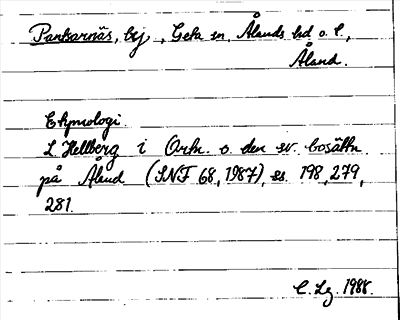 Pantsarnäs, by, Geta sn, Ålands hd o. l.,
Åland.
Etymologi.
L Hellberg i Ortn. o. den sv. bosättn.
på Åland (SNF 68, 1987), ss. 198, 279,
281.
C. Lg. 1988.